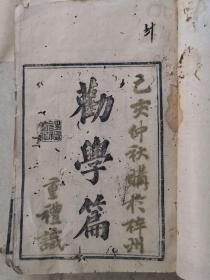 己亥仲秋購於梓州
勸學篇
重禮識